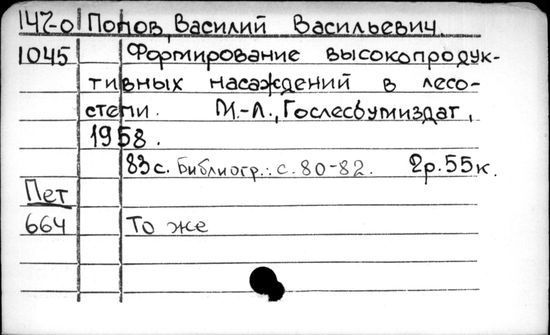 147-0 Попов, Василий Васильевич.
1045 Формирование высокопродук-
тивных насаждений в лесо-
степи. М.-Л., Гослесбумиздат,
1958.
83с. Библиогр.: с. 80-82. 2р. 55к.
Пет
664 То же